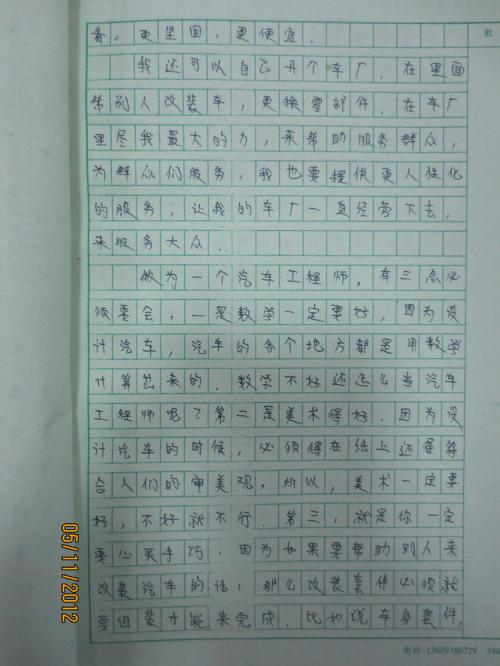 备，更坚固，更便宜．
我还可以自己开个车厂．在里面
帮别人改装车，更换零部件．在车厂
里尽我最大的力，来帮助服务群众，
为群众们服务，我也要提供更人性化
的服务，让我的车厂一直经营下去，
来服务大众．
做为一个汽车工程师，有三点必
须要会，一是数学一定要好，因为设
计汽车，汽车的各个地方都是用数学
计算出来的．数学不好还怎么当汽车
工程师呢？第二是美术得好．因为设
计汽车的时候，必须得在纸上还得符
合人们的审美观，所以，美术一定要
好，不好就不行．第三，就是你一定
要心灵手巧．因为如果要帮助别人来
改装汽车的话，那么改装套件必须就
要组装才能来完成．比如说车身套件，
电话:13609380729 398
05/11/2012